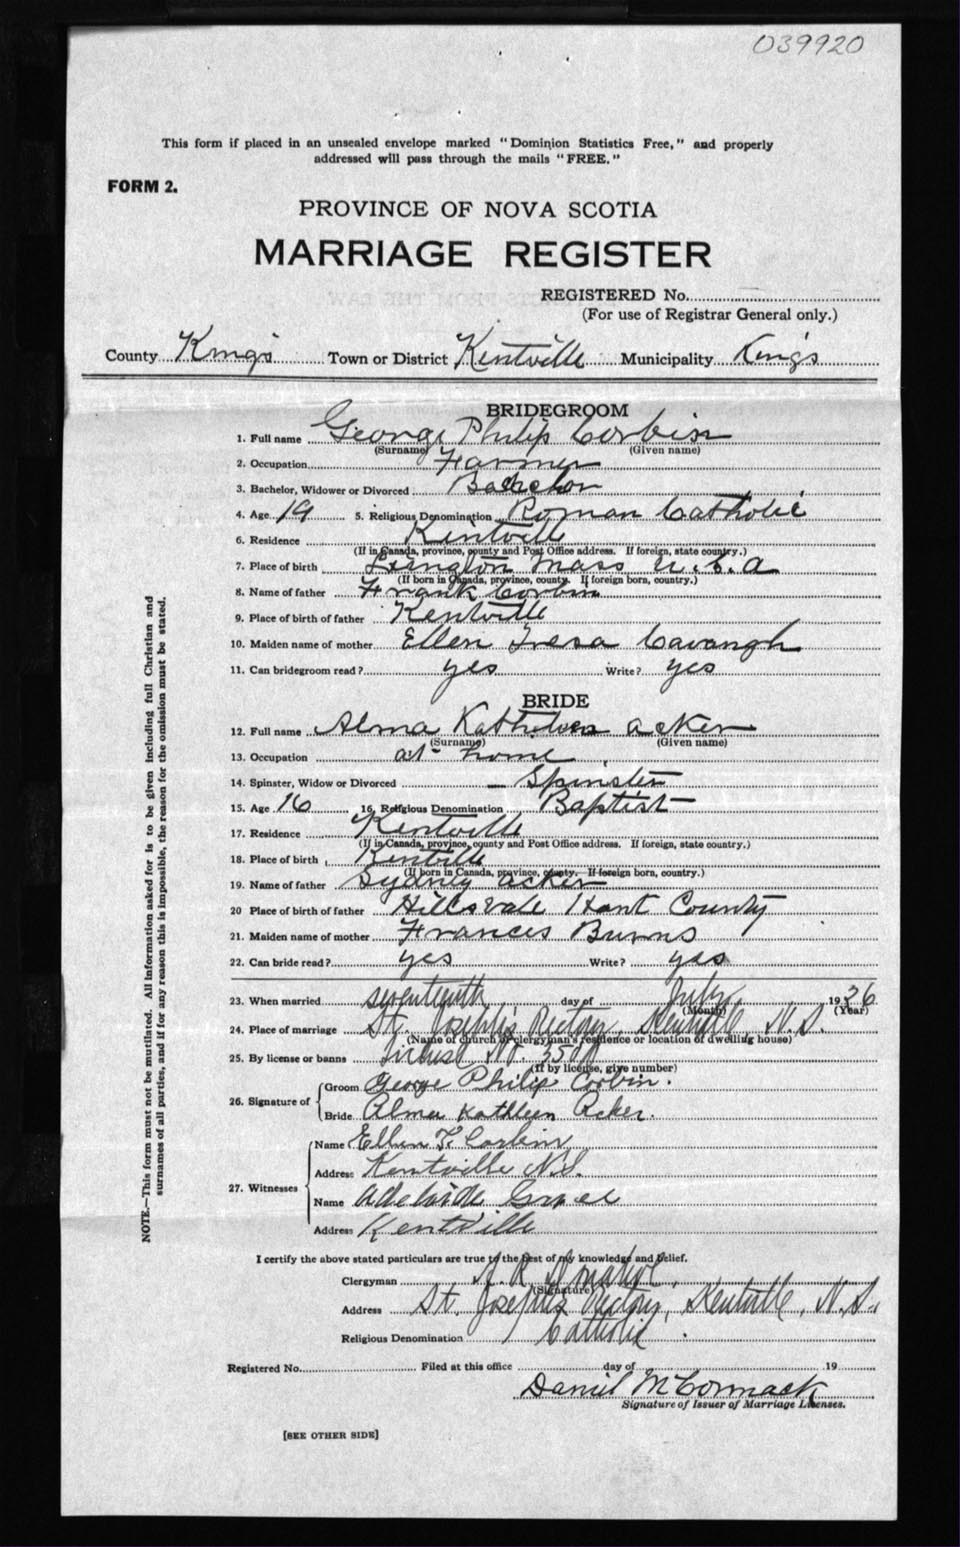 039920
This form if placed in an unsealed envelope marked "Dominion Statistics Free," and properly
addressed will pass through the mails "FREE."
FORM 2.
PROVINCE OF NOVA SCOTIA
MARRIAGE REGISTER
REGISTERED No.
(For use of Registrar General only.)
County King's Town or District Kentville Municipality King's
BRIDEGROOM
1. Full name George Philip Corbin
(Surname) (Given name)
2. Occupation Farmer
3. Bachelor, Widower or Divorced Bachelor
4. Age 19 5. Religious Denomination Roman Catholic
6. Residence Kentville
(If in Canada, province, county and Post Office address. If foreign, state country.)
7. Place of birth Lexington Mass U.S.A
(If born in Canada, province, county. If foreign born, country.)
8. Name of father Frank Corbin
9. Place of birth of father Kentville
10. Maiden name of mother Ellen Tresa Cavangh
11. Can bridegroom read? yes Write? yes
BRIDE
12. Full name Alma Kathleen Acker
(Surname) (Given name)
13. Occupation at home
14. Spinster, Widow or Divorced Spinster
15. Age 16 16. Religious Denomination Baptist
17. Residence Kentville
(If in Canada, province, county and Post Office address. If foreign, state country.)
18. Place of birth Kentville
(If born in Canada, province, county. If foreign born, country.)
19. Name of father Sydney Acker
20 Place of birth of father Hillsvale Hant County
21. Maiden name of mother Frances Burns
22. Can bride read? yes Write? yes
23. When married seventeenth day of July 1936
(Month) (Year)
24. Place of marriage St. Joseph's Rectory, Kentville, N.S.
(Name of church or clergyman's residence or location of dwelling house)
25. By license or banns No.
(If by license, give number)
26. Signature of Groom George Philip Corbin.
Bride Alma Kathleen Acker.
27. Witnesses Name Ellen T. Corbin
Address Kentville N.S.
Name Adelaide
Address Kentville
I certify the above stated particulars are true to the best of my knowledge and belief.
Clergyman
(Signature)
Address St. Joseph's Rectory, Kentville, N.S.
Religious Denomination Catholic
Registered No. Filed at this office day of 19
Daniel McCormack
Signature of Issuer of Marriage Licenses.
[SEE OTHER SIDE]
NOTE.—This form must not be mutilated. All information asked for is to be given including full Christian and
surnames of all parties, and if for any reason this is impossible, the reason for the omission must be stated.